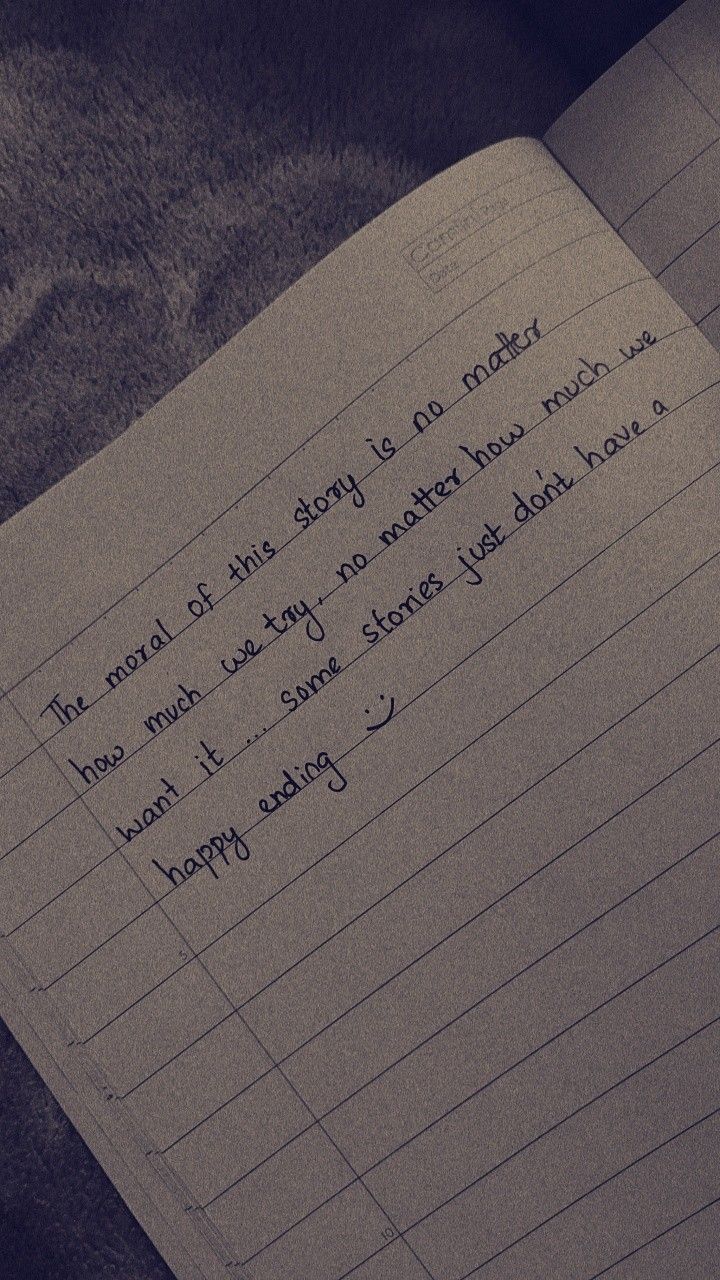 Date
The moral of this story is no matter
how much we try, no matter how much we
want it ... some stories just don't have a
happy ending :)
5
10